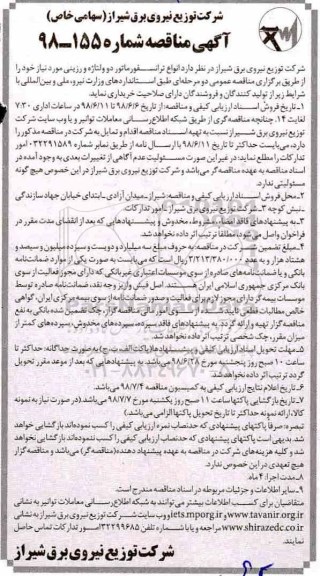 شرکت توزیع نیروی برق شیراز (سهامی خاص)
آگهی مناقصه شماره ۱۵۵-۹۸
شرکت توزیع نیروی برق شیراز در نظر دارد انواع ترانسفورماتور دو ولتاژه و رزینی مورد نیاز خود را
از طریق برگزاری مناقصه عمومی دو مرحله‌ای طبق استانداردهای وزارت نیرو، ملی و بین‌المللی با
شرایط زیر از تولید کنندگان و فروشندگان دارای صلاحیت خریداری نماید.
۱- تاریخ فروش اسناد ارزیابی کیفی و مناقصه: از تاریخ ۹۸/۶/۶ تا ۹۸/۶/۱۱ در ساعات اداری ۷:۳۰
لغایت ۱۴. چنانچه مناقصه گری از طریق شبکه اطلاع‌رسانی معاملات توانیر و یا وب سایت شرکت
توزیع نیروی برق شیراز نسبت به تهیه اسناد مناقصه اقدام و تمایل به شرکت در مناقصه مذکور را
دارد، می‌بایست حداکثر تا تاریخ ۹۸/۶/۱۱ با ارسال نامه از طریق نمابر شماره ۰۳۲۲۹۱۵۸۹ امور
تدارکات را مطلع نماید؛ در غیر این صورت مسئولیت عدم آگاهی از تغییرات بعدی به وجود آمده در
اسناد مناقصه به عهده مناقصه گر می‌باشد و شرکت توزیع نیروی برق شیراز در این خصوص هیچ گونه
مسئولیتی ندارد.
۲- محل فروش اسناد ارزیابی کیفی و مناقصه: شیراز - میدان آزادی - ابتدای خیابان جهاد سازندگی
- نبش کوچه ۳ - شرکت توزیع نیروی برق شیراز - امور تدارکات
۳- به پیشنهادهای فاقد امضاء، مشروط، مخدوش و پیشنهادهایی که بعد از انقضای مدت مقرر در
فراخوان واصل می‌شود مطلقا ترتیب اثر داده نخواهد شد.
۴- مبلغ تضمین شرکت در مناقصه به حروف مبلغ سه میلیارد و دویست و سیزده میلیون و سیصد و
هشتاد هزار و به عدد ۳/۲۱۳/۳۸۰/۰۰۰ ریال است که می‌بایست به صورت یکی از موارد ضمانت‌نامه
بانکی و یا ضمانت‌نامه‌های صادره از سوی موسسات اعتباری غیر بانکی که دارای مجوز فعالیت از سوی
بانک مرکزی جمهوری اسلامی ایران هستند، اصل فیش واریز وجه نقد، ضمانت‌نامه صادره توسط
موسسات بیمه گر دارای مجوز لازم برای فعالیت و صدور ضمانت‌نامه از سوی بیمه مرکزی ایران، گواهی
خالص مطالبات قطعی تایید شده از سوی امور مالی مناقصه گزار، چک تضمین شده بانکی به نفع
مناقصه گزار تهیه و ارائه گردد. به پیشنهادهای فاقد سپرده، سپرده‌های مخدوش، سپرده‌های کمتر از
میزان مقرر، چک شخصی ترتیب اثر داده نخواهد شد.
۵- مهلت تحویل اسناد ارزیابی کیفی و پیشنهادها (پاکت الف، ب، ج) به صورت جداگانه: حداکثر تا
ساعت ۱۰ صبح روز پنجشنبه مورخ می‌باشد. به پیشنهادهایی که بعد از موعد مقرر تحویل
گردد ترتیب اثر داده نخواهد شد.
۶- تاریخ اعلام نتایج ارزیابی کیفی به کمیسیون مناقصه ۹۸/۷/۴ می‌باشد.
۷- تاریخ بازگشایی پاکتها ساعت ۱۱ صبح روز یکشنبه مورخ ۹۸/۷/۷ می‌باشد. (در صورت نیاز به نمونه
کالا، ارائه نمونه حداکثر تا تاریخ تحویل پاکتها الزامی می‌باشد.)
تبصره: صرفا پاکتهای پیشنهادی که حدنصاب نمره ارزیابی کیفی را کسب نموده‌اند بازگشایی خواهد
شد. بدیهی است پاکتهای پیشنهادی که حدنصاب ارزیابی کیفی را کسب ننموده‌اند بازگشایی نخواهد
شد و کلیه هزینه‌های شرکت در مناقصه به عهده پیشنهاد دهنده (مناقصه گر) می‌باشد و مناقصه گزار
هیچ تعهدی در این خصوص ندارد.
۸- مدت اجرا: ۴ ماه.
۹- سایر اطلاعات و جزئیات مربوطه در اسناد مناقصه مندرج است.
متقاضیان برای کسب اطلاعات بیشتر می‌توانند به شبکه اطلاع‌رسانی معاملات توانیر به نشانی
www.tavanir.org.ir و iets.mporg.ir وب سایت شرکت توزیع نیروی برق شیراز به نشانی
www.shirazedc.co.ir مراجعه و یا با شماره تلفن ۳۲۲۹۹۶۸۵ امور تدارکات تماس حاصل
نمایند.
شرکت توزیع نیروی برق شیراز